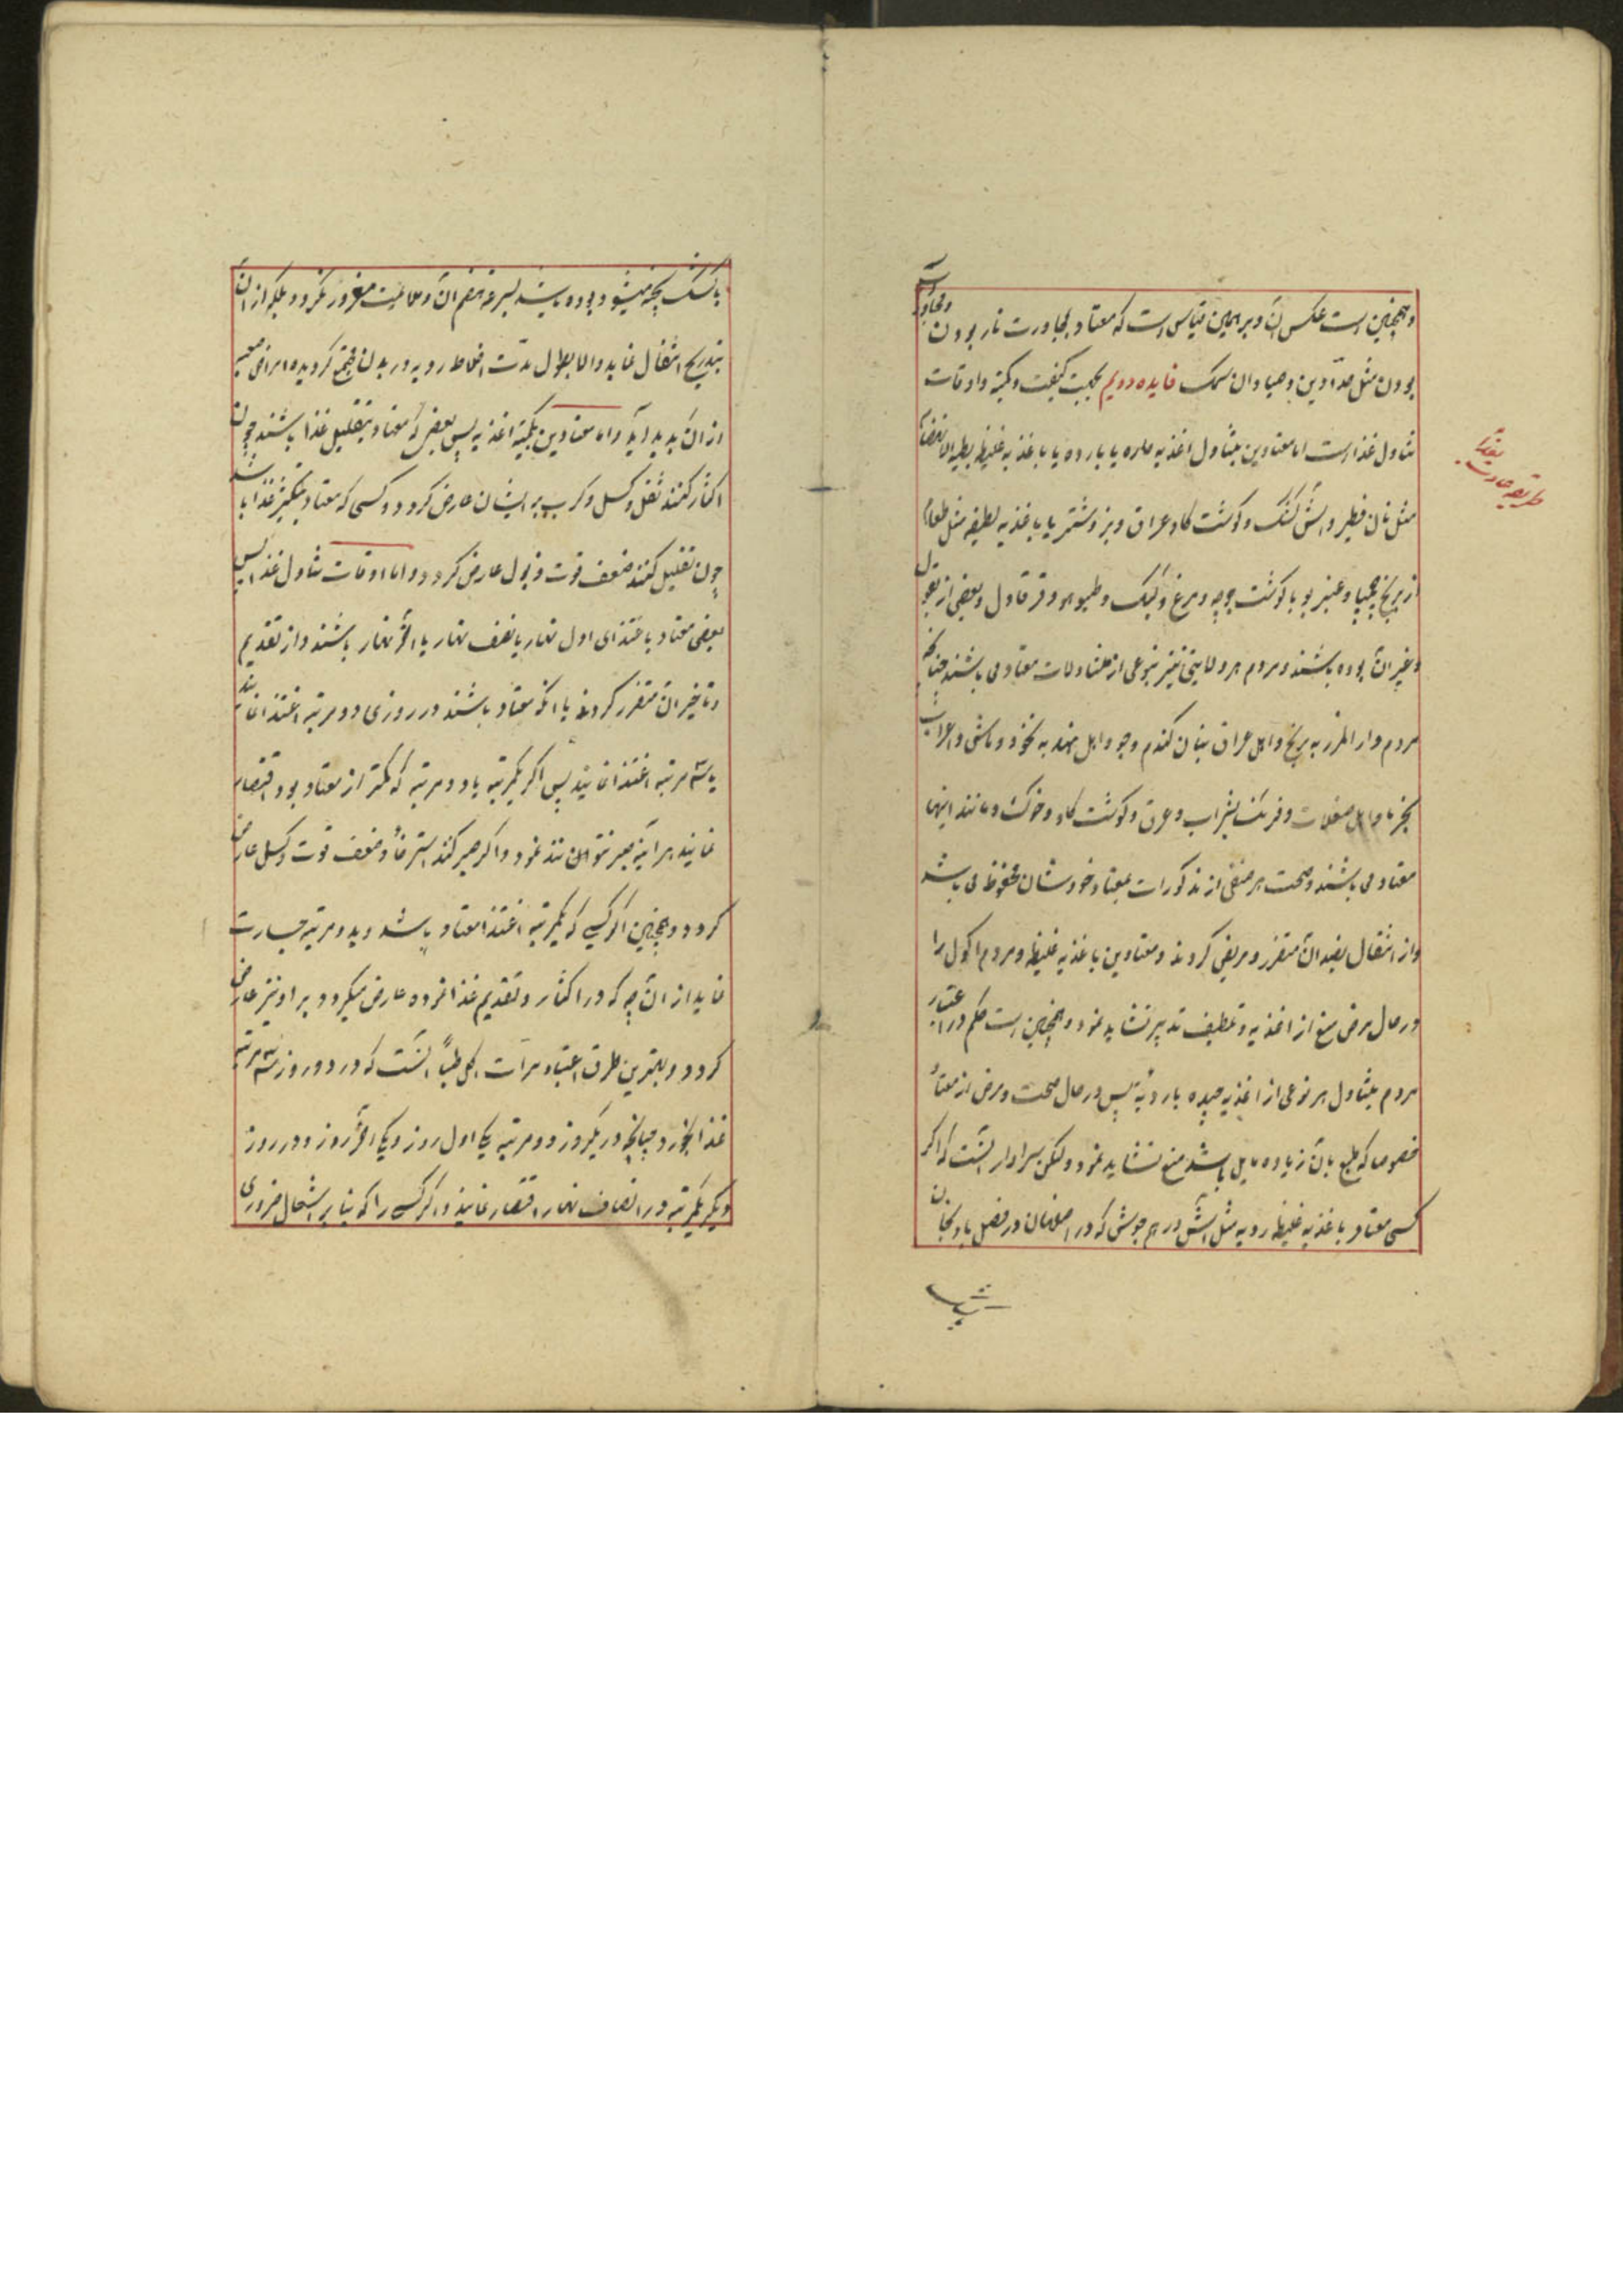 وهمچنین است عکس آن و برهمین قیاس است که معتاد بمجاورت نار بودن و مجاورت آب
بودن مثل حدّادین و صیادان سمک فایده دویم بحسب کیفیت و کمیة و اوقات
تناول غذا است اما معتادین بتناول اغذیه حاره یا بارده یا باغذیه غلیظه بطیة الانهضام
مثل نان فطیر و آش کشک و کوشت کاو عراق و بز و شتر یا باغذیه لطیفه مثل طعام
از برنج چمپا و عنبربو با کوشت جوجه و مرغ و کبک و طیهو و قرقاول و بعضی از بقول
و غیر آن بوده باشند و مردم هر ولایتی نیز بنوعی از متناولات معتاد می باشند چنانکه
مردم دار المرز به برنج و اهل عراق بنان کندم و جو و اهل هند به نخود و ماش و اعراب
بخرما و اهل صقلات و فرنک بشراب و عرق و کوشت کاو و خوک و مانند اینها
معتاد می باشند و صحت هر صنفی از مذکورات بمعتاد خودشان محفوظ می باشد
و از انتقال بضد آن متضرر و مریض کردند و معتادین باغذیه غلیظه و مردم اکول را
در حال مرض منع از اغذیه و تلطیف تدبیر نشاید نمود و همچنین است حکم در اعتیاد
مردم بتناول هر نوعی از اغذیه جیده یا ردیّه پس در حال صحت و مرض از معتاد
خصوصا که طبع بآن زیاده مایل باشد منع نشاید نمود و لکن سزاوار آنست که اکر
کسی معتاد باغذیه غلیظه ردیه مثل آش درهم جوش که در اصفهان در فصل بادنجان
طریقه عادت بغذا
با کشک پخته میشود بوده باشد بسرعة هضم آن و ملایمت مغرور نکردد بلکه از آن
بتدریج انتقال نماید والا بطول مدّت اخلاط ردیه در بدن مجتمع کردیده امراض
از آن پدید آید و اما معتادین بکمیة اغذیه پس بعضی که معتاد بتقلیل غذا باشند چون
اکثار کنند ثقل و کسل و کرب به ایشان عارض کردد و کسی که معتاد بتکثیر غذا باشد
چون تقلیل کنند ضعف قوت و ذبول عارض کردد و اما اوقات تناول غذا پس
بعضی معتاد باغتذای اول نهار یا نصف نهار یا آخر نهار باشند و از تقدیم
و تاخیر آن متضرر کردند یا آنکه معتاد باشند در روزی دو مرتبه اغتذا نمایند
یا سه مرتبه اغتذا نمایند پس اکر یکمرتبه یا دو مرتبه که کمتر از معتاد بود اقتصار
نمایند هر آینه صبر نتوانند نمود و اکر صبر کنند استرخاء و ضعف قوت و کسل عارض
کردد و همچنین اکر کسی که یکمرتبه اغتذا معتاد باشد و بدو مرتبه جسارت
نماید از آن چه که در اکثار و تقدیم غذا نموده عارض میکردد بر او نیز عارض
کردد و بهترین طرق اعتیاد مرّات اکل طبّاً آنست که در دو روز سه مرتبه
غذا بخورد چنانچه در یکروز دو مرتبه یکی اول روز و یکی آخر روز و در روز
دیکر یکمرتبه در انصاف نهار اقتصار نمایند و اکر کسی را که بنابر اشتغال ضروری